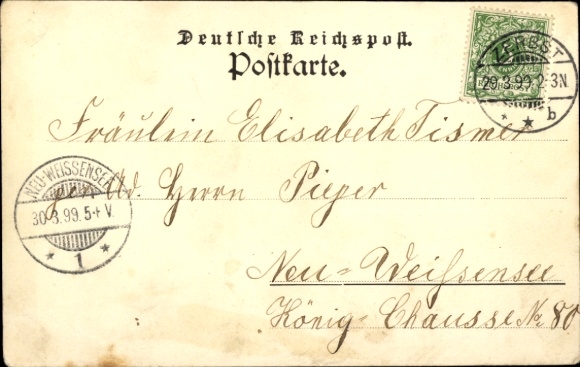 Deutsche Reichspost.
Postkarte.
ZERBST
29.3.99.2-3N.
* * b
Fräulein Elisabeth Tismer
NEU-WEISSENSEE
30.3.99.5-6V.
* 1 *
Ad. Herrn Pieper
Neu-Weißensee
König-Chausse No 80